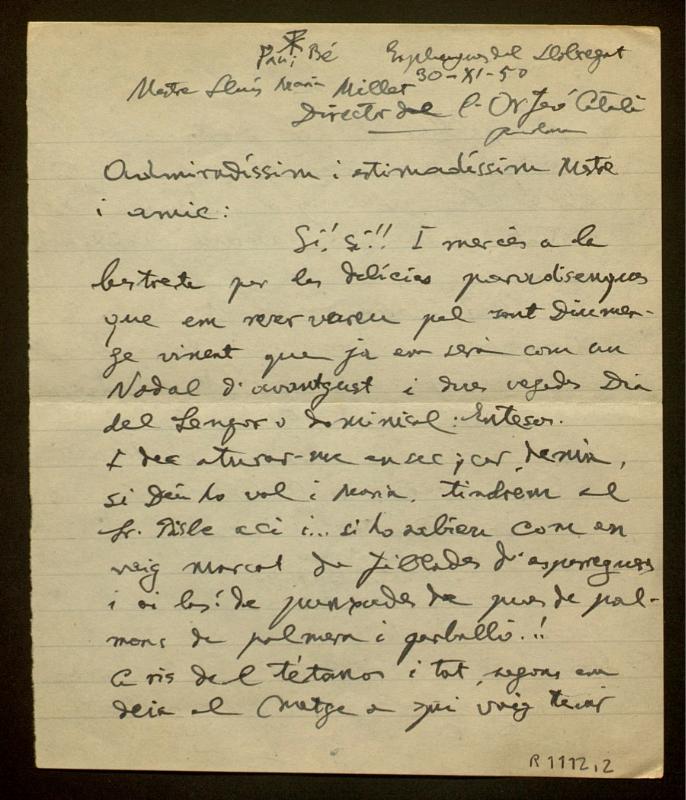 Pau i Bé Esplugues del Llobregat
30-XI-50
Mestre Lluís Maria Millet
Director del l'Orfeó Català
Admiradíssim i estimadíssim Mestre
i amic:
Sí! sí!! I mercès a la
bestreta per les delícies paradisenques
que em reservareu pel sant Diumen-
ge vinent que ja em serà com un
Nadal d'avantgust i dues vegades Dia
del Senyor o dominical: Entesos.
I dec aturar-me en sec, car, demà,
si Déu ho vol i Maria, tindrem el
Sr. Bisbe ací i... si ho sabíeu com en
vaig marcat de fiblades d'esparregueres
i oi las! de punxades de pues de pal-
mons de palmera i garballó..!!
A ris del tétanos i tot, segons em
deia el Metge a qui vaig tenir
R 1112,2